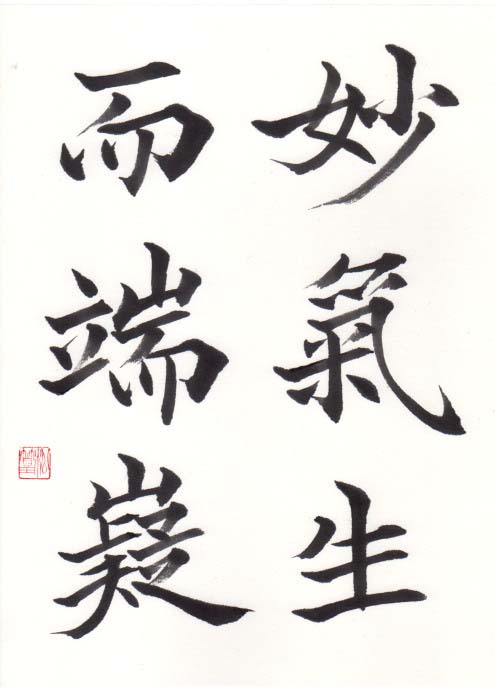 妙氣生
而端嶷